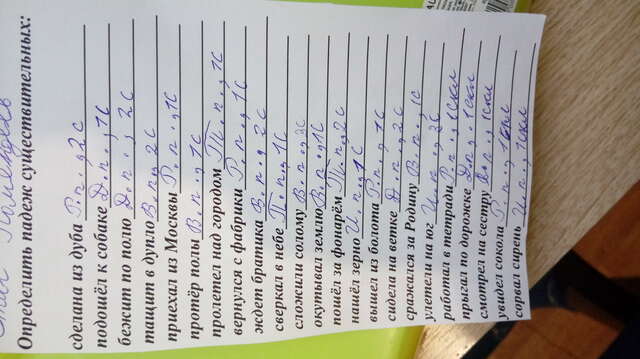 Определить падеж существительных:
сделана из дуба Р.п., 2с
подошёл к собаке Д.п., 1с
бежит по полю Д.п., 2с
тащит в дупло В.п., 2с
приехал из Москвы Р.п., 1с
протёр полы В.п., 1с
пролетел над городом Т.п., 1с
вернулся с фабрики Р.п., 1с
ждет братика В.п. 2с
сверкал в небе П.п., 1с
сложили солому В.п., 3с
окутывал землю В.п., 1с
пошёл за фонарём Т.п. 2с
нашёл зерно И.п., 1с
вышел из болота Р.п., 1с
сидела на ветке Д.п., 2с
сражался за Родину В.п., 1с
улетели на юг И.п., 2с
работал в тетради Р.п., 1скл
прыгал по дорожке Д.п., 1скл
смотрел на сестру В.п., 1скл
увидел сокола Р.п., 1скл
сорвал сирень И.п., 1скл